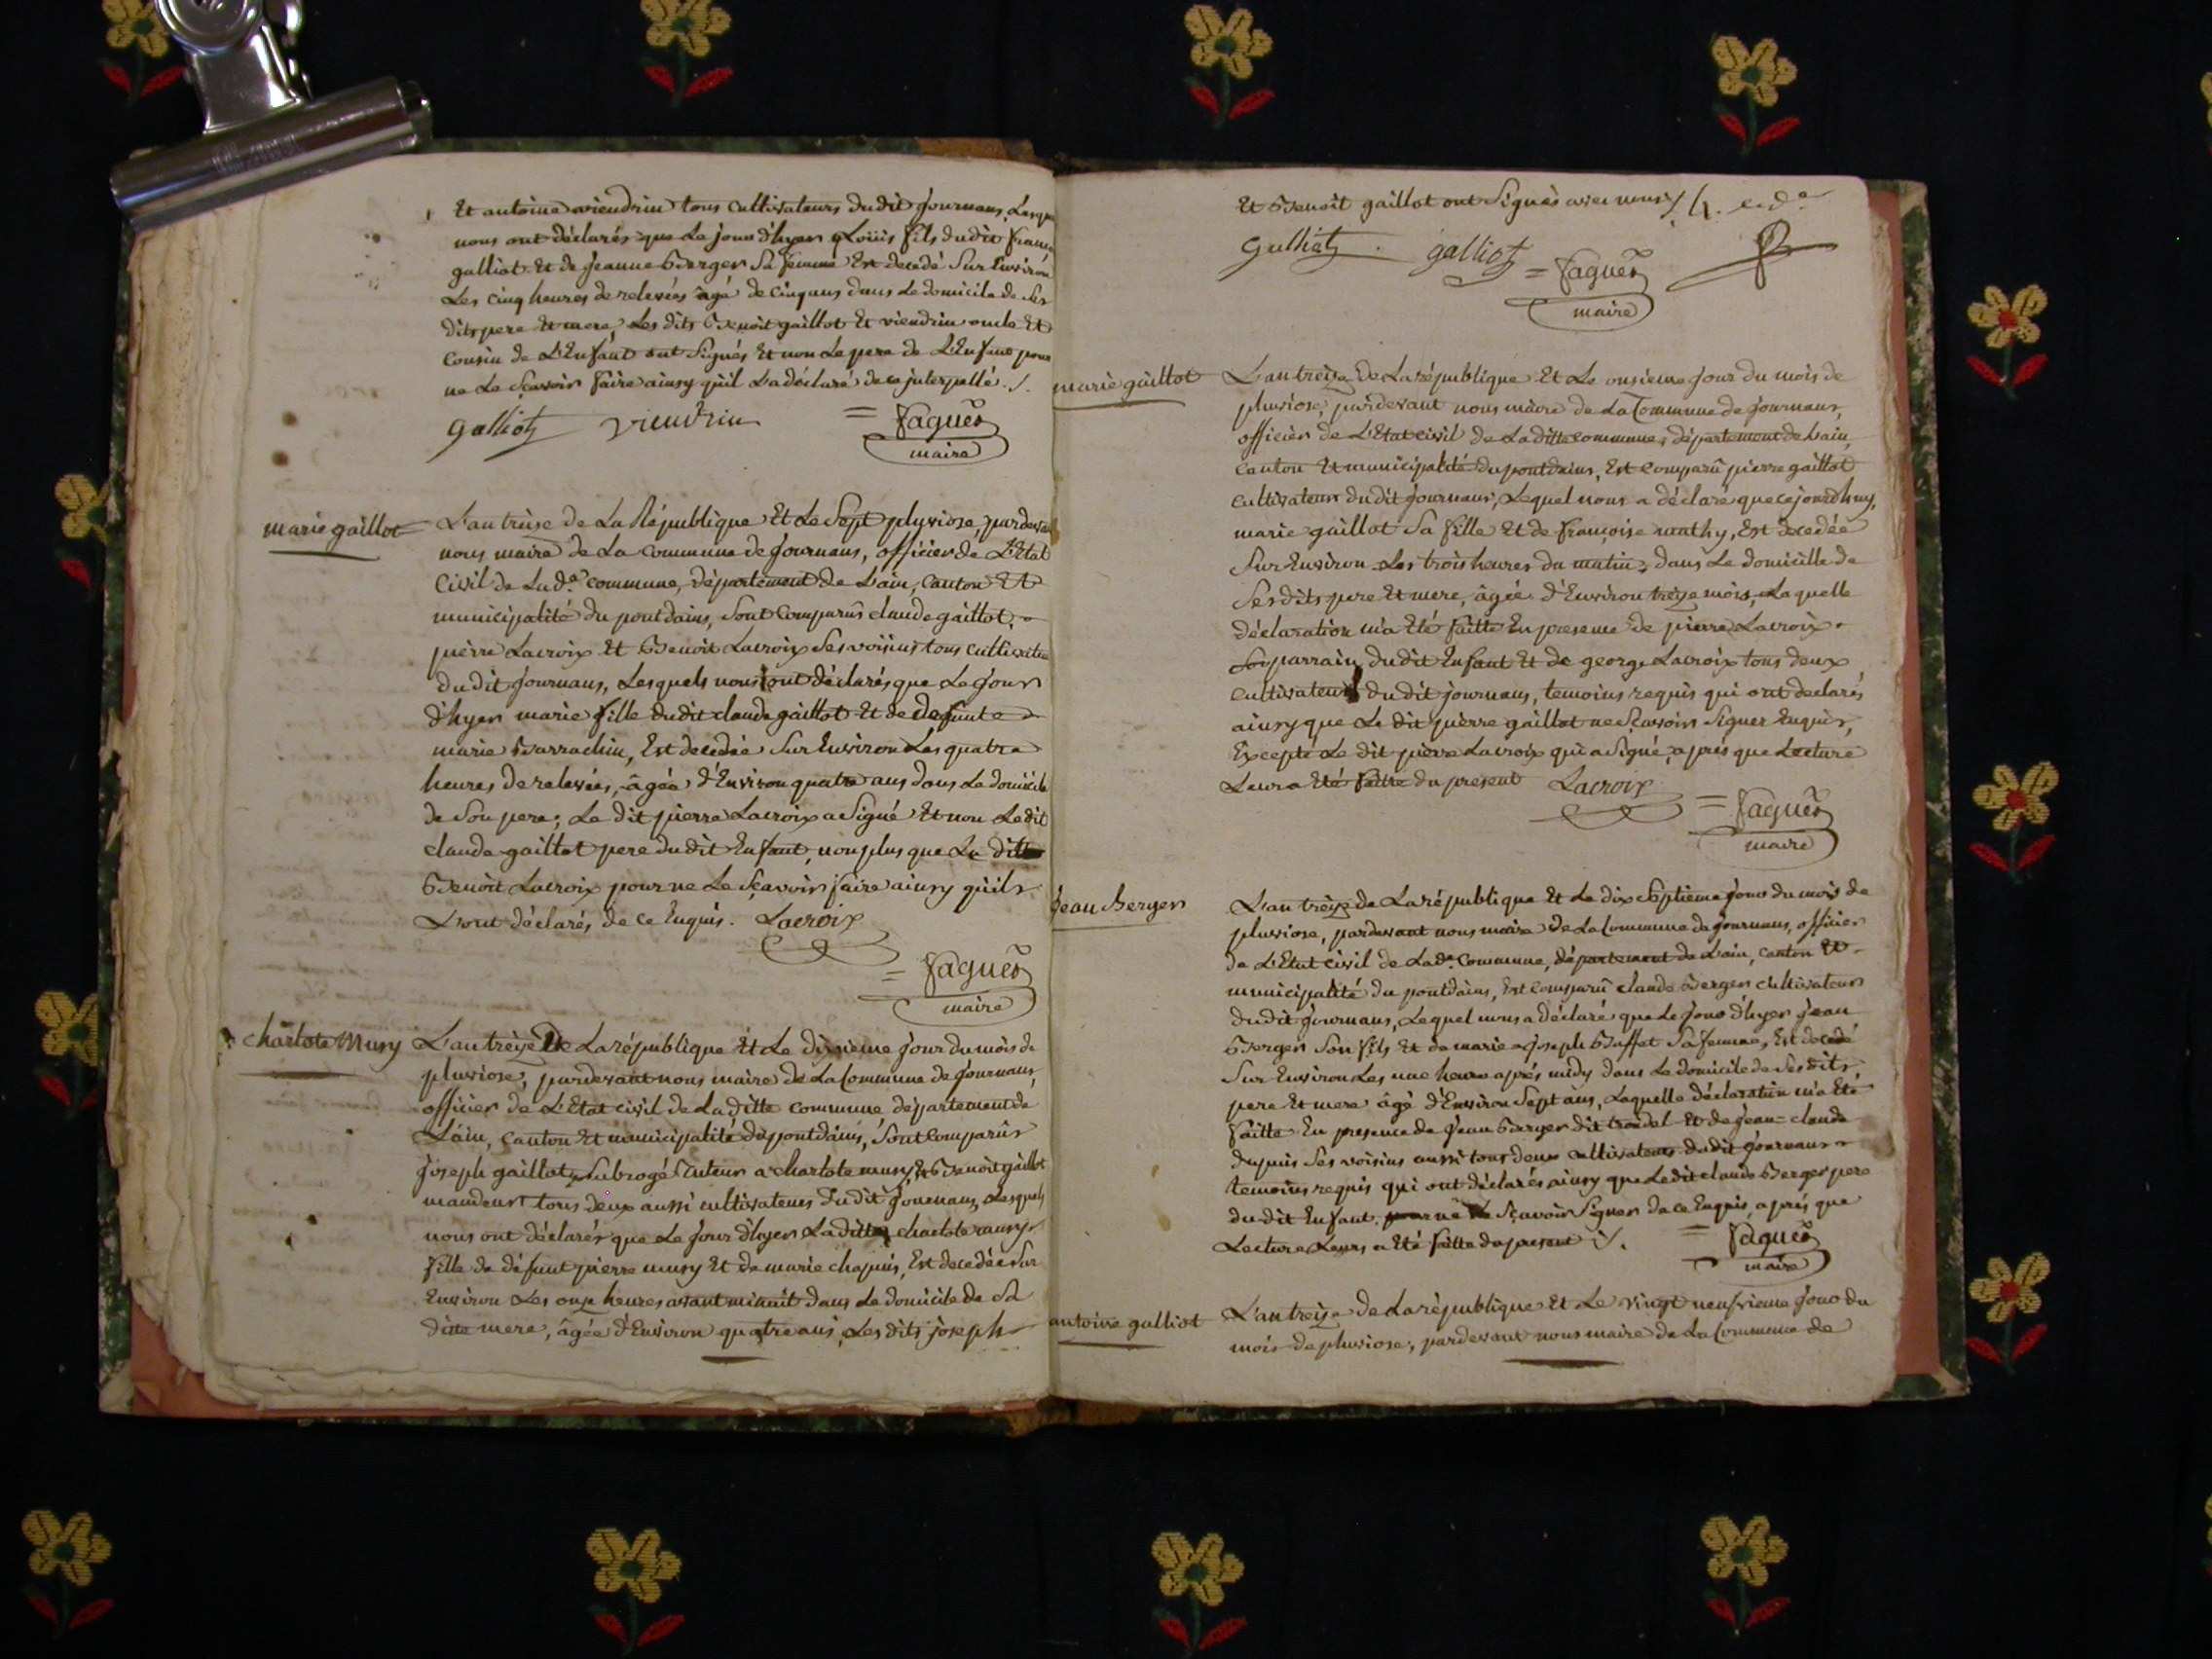 Et antoine viendrin tous cultivateurs dudit Journans, Lesquels
nous ont déclarés que Le jour d'hyer Loüis fils dudit françois
galliot Et de Jeanne Berger Sa femme Est decedé Sur Environ
Les cinq heures de relevées âgé de cinq ans dans Le domicile de Ses
dits pere Et mere, Les dits Benoit gaillot Et viendrin oncle Et
Cousin de L'Enfant ont Signés Et non Le pere de L'Enfant pour
ne Le Sçavoir faire ainsy qu'il L'a déclaré de ce interpellé ./.
Galliot viendrin = Faguès
maire
marie gaillot
L'an treise de La République Et Le Sept pluviose, pardevant
nous maire de La commune de Journans, officier de L'Etat
Civil de Lad.e commune, département de L'ain, Canton Et
municipalité du pontdains, Sont Comparûs claude gaillot,
pierre Lacroix Et Benoit Lacroix Ses voisins tous cultivateurs
dudit Journans, Lesquels nous ont déclarés que Le Jour
d'hyer marie fille dudit claude gaillot Et de defunte
marie Barrachin, Est decedée Sur Environ Les quatre
heures de relevées, âgée d'Environ quatre ans dans Le domicile
de Son pere; Le dit pierre Lacroix a Signé Et non Le dit
claude gaillot pere dudit Enfant, non plus que Le dit
Benoit Lacroix pour ne Le Sçavoir faire ainsy qu'ils
L'ont déclarés de ce Enquis. Lacroix
= Faguès
maire
charlote Musy
L'an treize De La république Et Le dixieme jour du mois de
pluviose, pardevant nous maire de La Commune de Journans,
officier de L'Etat civil de La ditte commune département de
L'ain, Canton Et municipalité du pontdains, Sont Comparûs
Joseph gaillot, Subrogé tuteur a charlote musy, Et Benoit gaillot
tous deux aussi cultivateurs dudit Journans, Lesquels
nous ont déclarés que Le Jour d'hyer La ditte charlote musy
fille de défunt pierre musy Et de marie chapuis, Est decedée Sur
Environ Les onze heures avant minuit dans Le domicile de Sa
ditte mere, âgée d'Environ quatre ans, Les dits joseph
Et Benoit gaillot ont Signés avec nous
Galliot. galliot = Faguès
maire
marie gaillot
L'an treize De La république Et Le onsieme Jour du mois de
pluviose, pardevant nous maire de La Commune de Journans,
officier de L'Etat civil de La ditte commune, département de L'ain,
Canton Et municipalité du pontdains, Est Comparû pierre gaillot
cultivateur dudit Journans, Lequel nous a déclaré que cejourd'huy,
marie gaillot Sa fille Et de françoise mathy, Est decedée
Sur Environ Les trois heures du matin, dans Le domicille de
Ses dits pere Et mere, âgée d'Environ treize mois, Laquelle
déclaration m'a Eté faitte En presence de pierre Lacroix
Son parrain dudit Enfant Et de george Lacroix tous deux
cultivateurs dudit journans, temoins requis qui ont declarés
ainsy que Le dit pierre gaillot ne Sçavoir Signer Enquis,
Excepté Le dit pierre Lacroix qui a Signé, aprés que Lecture
Leur a Eté faitte du present Lacroix
= Faguès
maire
Jean Berger
L'an treize de La république Et Le dix Septieme Jour du mois de
pluviose, pardevant nous maire de La Commune de Journans, officier
de L'Etat civil de Lad.e Commune, département de L'ain, canton Et
municipalité du pontdains, Est Comparû claude Berger cultivateur
dudit Journans, Lequel nous a déclaré que Le Jour d'hyer Jean
Berger Son fils Et de marie Joseph Buffet Sa femme, Est decedé
Sur Environ Les une heure aprés midy dans Le domicile de Ses dits
pere Et mere âgé d'Environ Sept ans, Laquelle déclaration m'a Eté
faitte En presence de Jean Berger dit Et de Jean-claude
dupuis Ses voisins aussi tous deux cultivateurs dudit Journans
temoins requis qui ont déclarés ainsy que Ledit claude Berger pere
dudit Enfant, ne Sçavoir Signer de ce Enquis, aprés que
Lecture Leurs a Eté faitte du present ./.
= Faguès
maire
antoine galliot
L'an treize de La république Et Le vingt neufvieme Jour du
mois de pluviose, pardevant nous maire de La Commune de